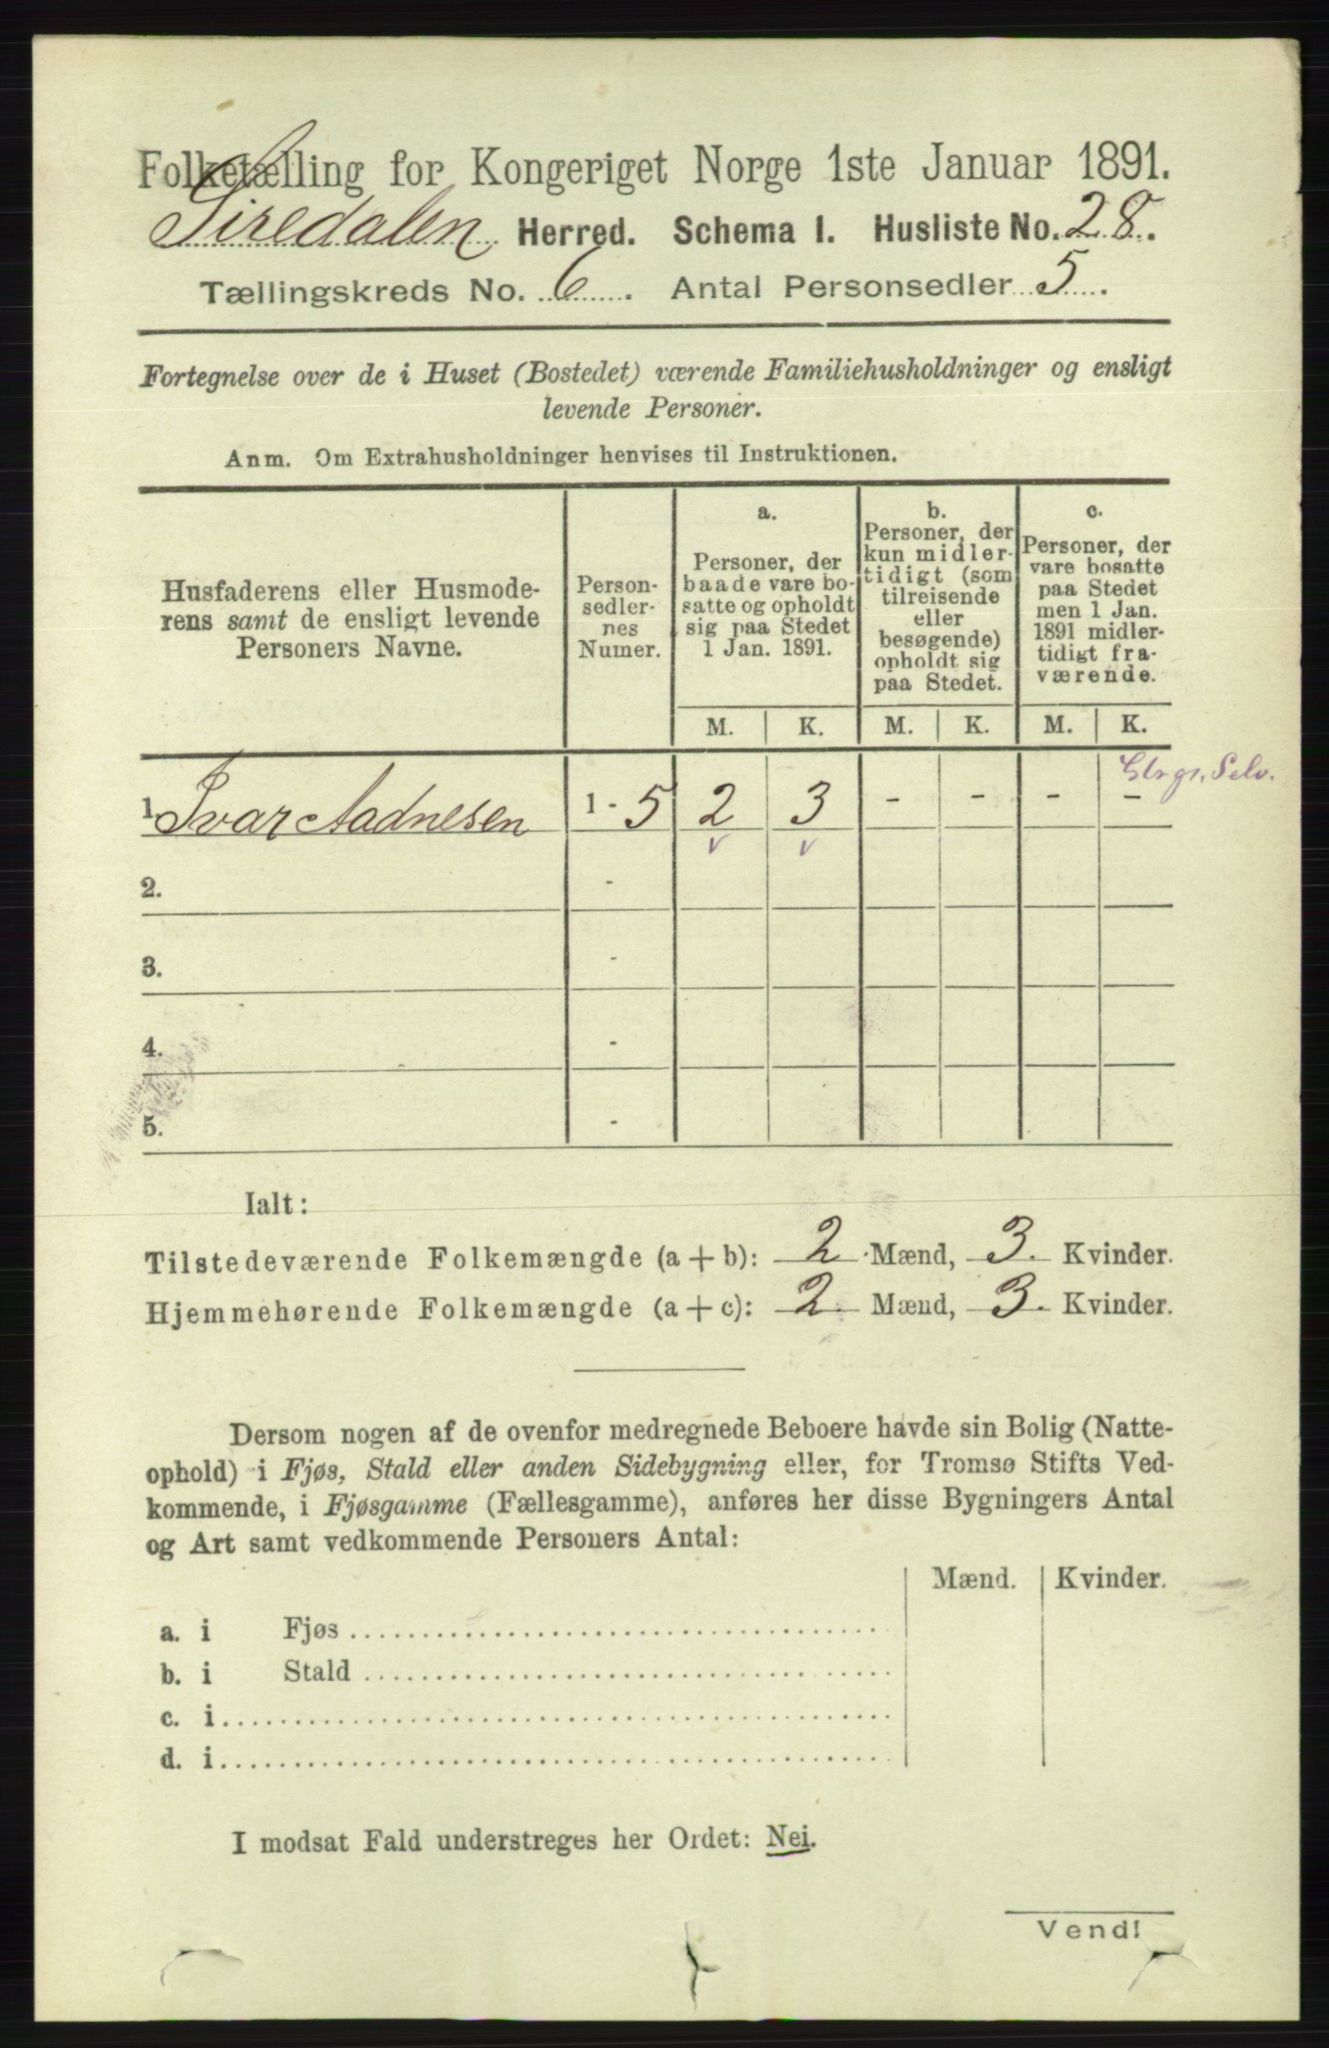 Folketælling for Kongeriget Norge 1ste Januar 1891.
Siredalen Herred. Schema I. Husliste No. 28.
Tællingskreds No. 6. Antal Personsedler 5.
Fortegnelse over de i Huset (Bostedet) værende Familiehusholdninger og ensligt
levende Personer.
Anm. Om Extrahusholdninger henvises til Instruktionen.
Husfaderens eller Husmode-
rens samt de ensligt levende
Personers Navne.
Person-
sedler-
nes
Numer.
a.
Personer, der
baade vare bo-
satte og opholdt
sig paa Stedet
1 Jan. 1891.
b.
Personer, der
kun midler-
tidigt (som
tilreisende
eller
besøgende)
opholdt sig
paa Stedet.
c.
Personer, der
vare bosatte
paa Stedet
men 1 Jan.
1891 midler-
tidigt fra-
værende.
M. K. M. K. M. K.
Selv.
1. Ivar Aadnesen 1 - 5 2 3 - - - -
v v
2. -
3. -
4. -
5. -
Ialt:
Tilstedeværende Folkemængde (a + b): 2 Mænd, 3. Kvinder.
Hjemmehørende Folkemængde (a + c): 2. Mænd, 3. Kvinder.
Dersom nogen af de ovenfor medregnede Beboere havde sin Bolig (Natte-
ophold) i Fjøs, Stald eller anden Sidebygning eller, for Tromsø Stifts Ved-
kommende, i Fjøsgamme (Fællesgamme), anføres her disse Bygningers Antal
og Art samt vedkommende Personers Antal:
Mænd. Kvinder.
a. i Fjøs
b. i Stald
c. i
d. i
I modsat Fald understreges her Ordet: Nei.
Vend!